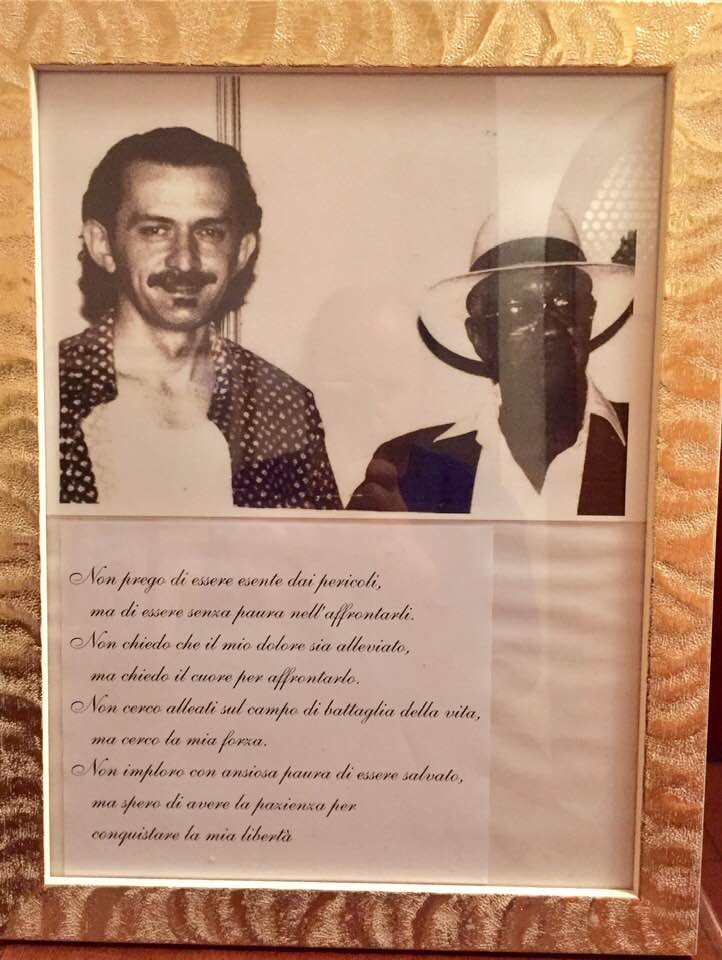 Non prego di essere esente dai pericoli,
ma di essere senza paura nell'affrontarli.
Non chiedo che il mio dolore sia alleviato,
ma chiedo il cuore per affrontarlo.
Non cerco alleati sul campo di battaglia della vita,
ma cerco la mia forza.
Non imploro con ansiosa paura di essere salvato,
ma spero di avere la pazienza per
conquistare la mia libertà